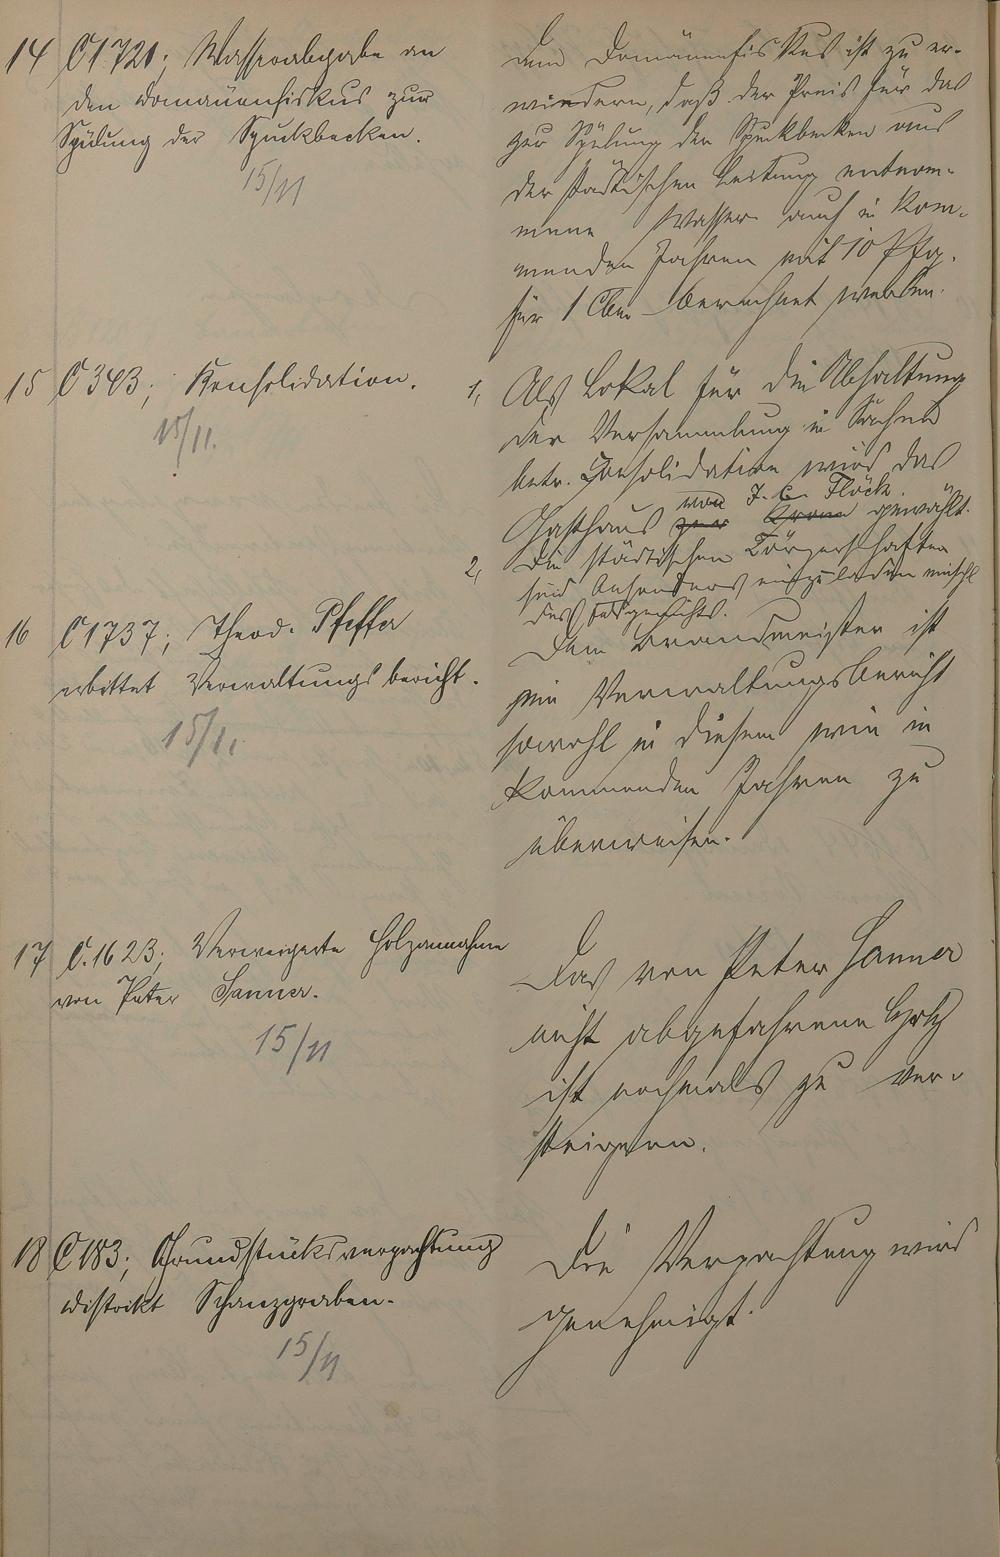 14 C 1721; Wasserabgabe an
den Domänenfiskus zur
Spülung der Spuckbecken.
15/11
Dem Domänenfiskus ist zu er-
wiedern, daß der Preis für das
zur Spülung der Spuckbecken aus
der städtischen Leitung entnom-
mene Wasser auch in kom-
menden Jahren mit 10 Pfg.
für 1 Cbm berechnet werden.
15 C 343; Konsolidation.
15/11.
1, Als Lokal für die Abhaltung
der Versammlung in Sachen
betr. Consolidation wird das
von J. C. Flöck.
Gasthaus zur Krone gewählt.
2, Die städtischen Körperschaften
sind besonders einzuladen einschl
des Feldgerichts.
16 C 1737; Theod. Pfeffer
erbittet Verwaltungsbericht.
15/11
Dem Brandmeister ist
ein Verwaltungsbericht
sowohl in diesem wie in
kommenden Jahren zu
überweisen.
17 C. 1623; Verweigerte Holzannahme
von Peter Sanner.
15/11
Das von Peter Sanner
nicht abgefahrene Holz
ist nochmals zu ver-
steigern.
18 C 183; Grundstücksverpachtung
Distrikt Schanzgraben.
15/11
Die Verpachtung wird
genehmigt.